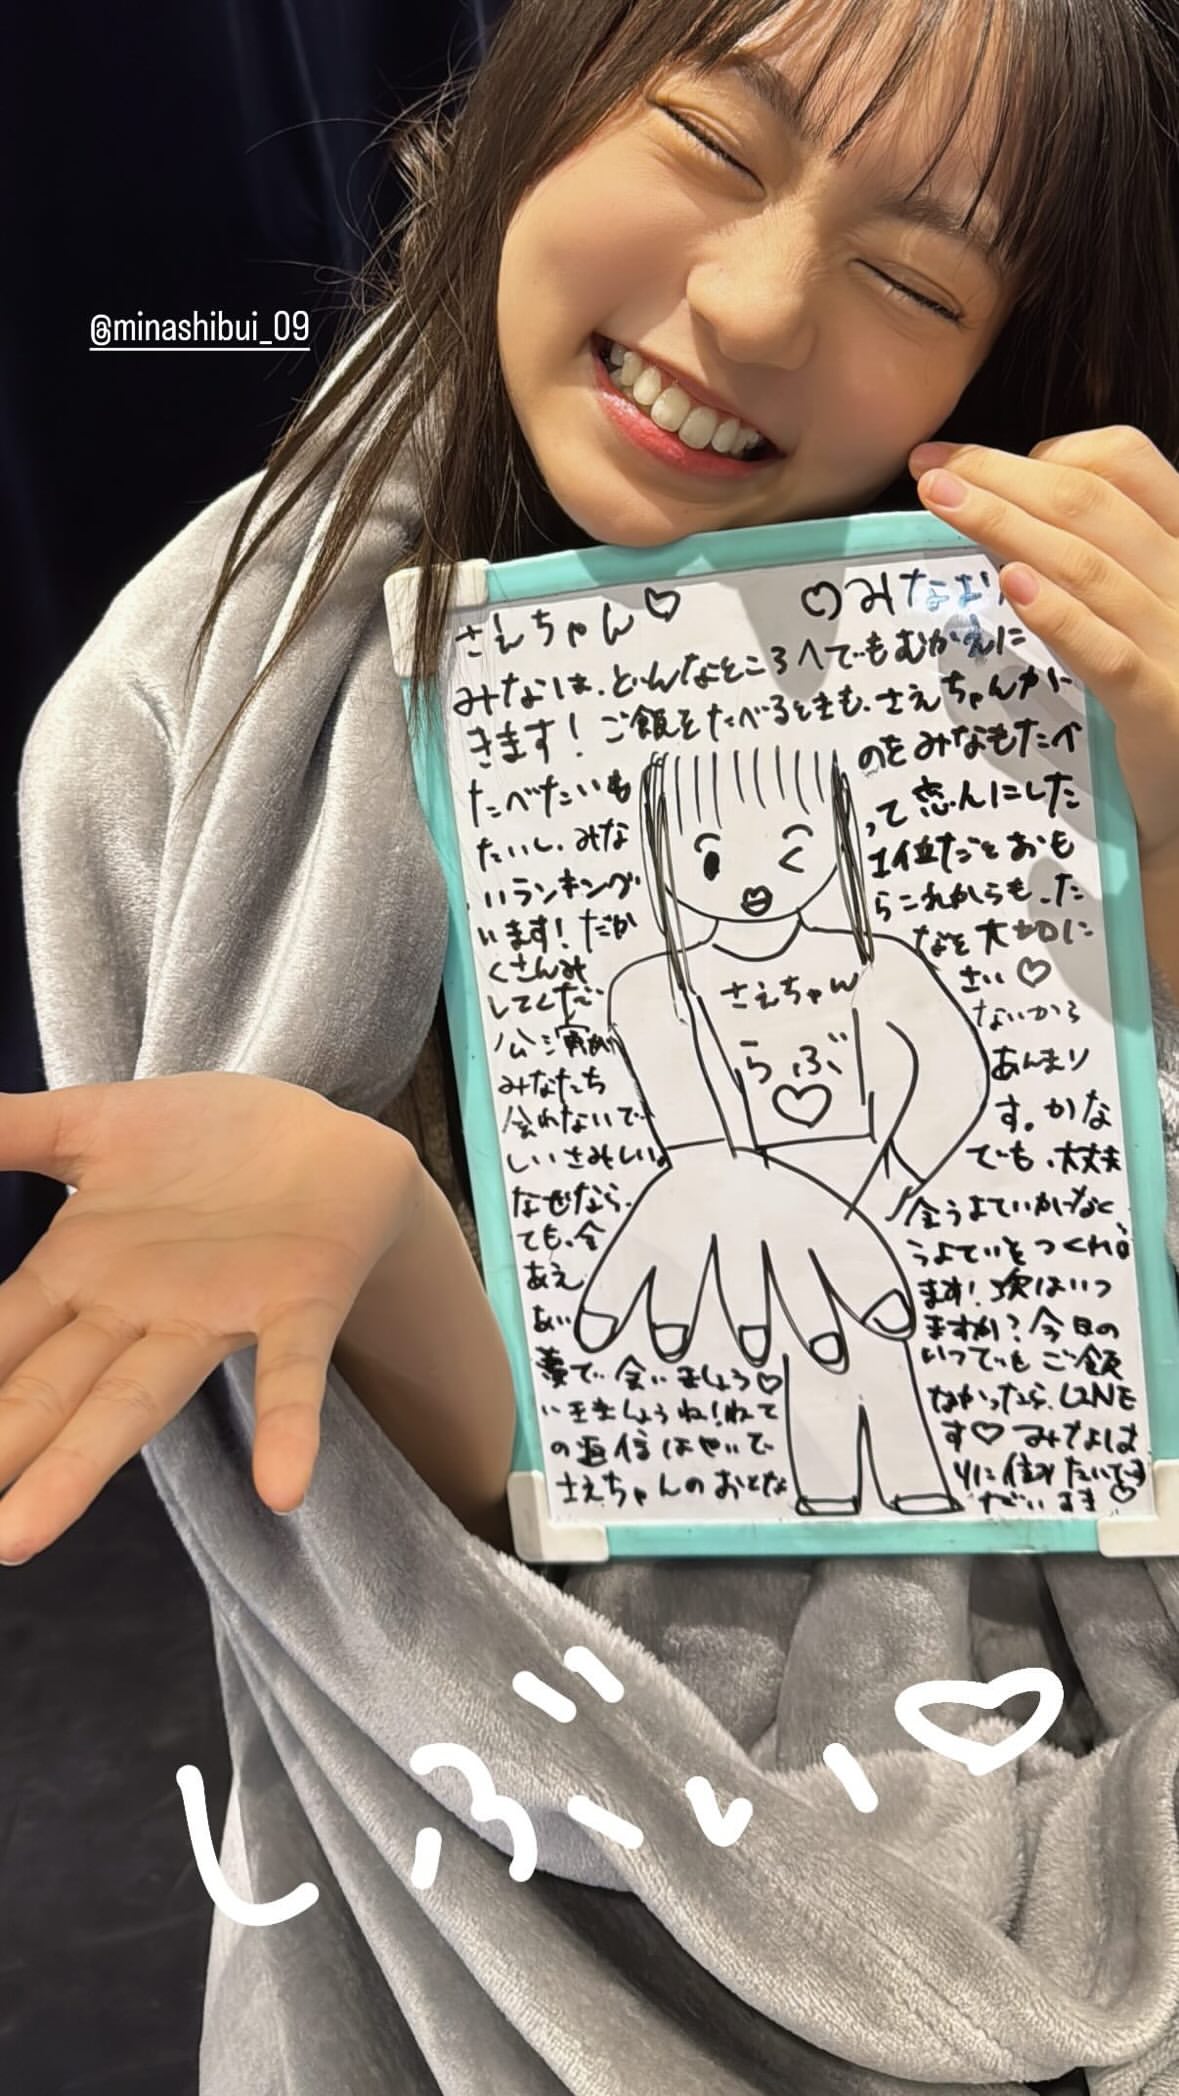 @minashibui_09
さえちゃん♡ ♡みなより
みなは、どんなところへでもむかえに
きます！ご飯をたべるときも、さえちゃんが
たべたいものをみなもたべ
たいし、みなって恋人にした
いランキング1位だとおも
います！だからこれからも、た
くさんみなを大切に
してくださいい♡
公演がないから
みなたちあんまり
会れないです。かな
しいさみしい。でも、大丈夫
なぜなら、会うよていがなく
ても、会うよていをつくれ
あえます！次はいつ
あいますか？今日の
夢で会いましょう♡いつでもご飯
いきましょうね！ねてなかったら、LINE
の返信はやいです♡みなは
さえちゃんのおとなりに住みたいです
だいすき♡
さえちゃん
らぶ
♡
しぶい♡